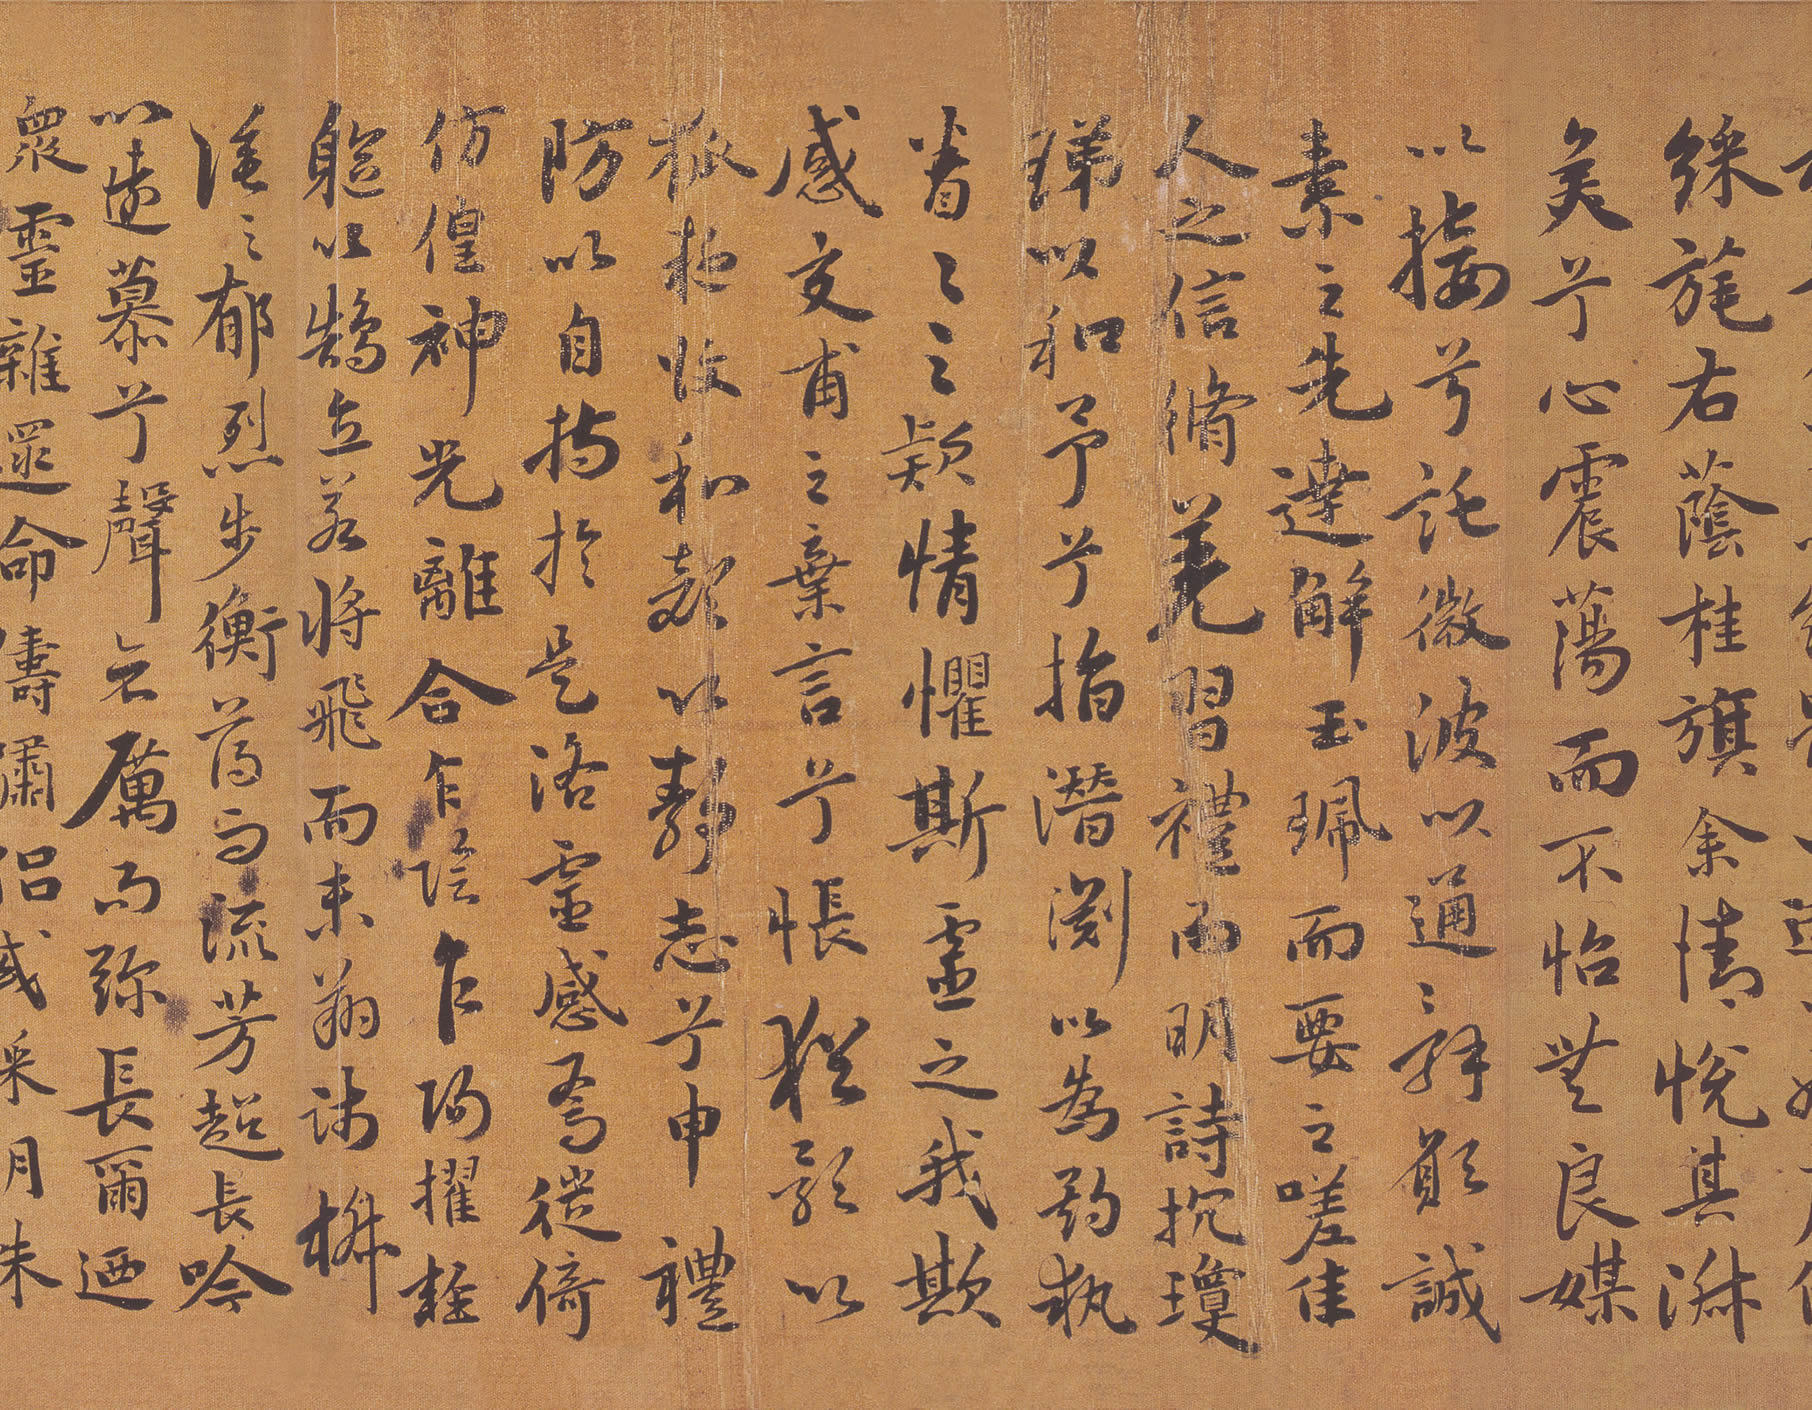 綵旄右蔭桂旗余情悅其淑
美兮心震蕩而不怡無良媒
以接兮託微波以通辭願誠
素之先達解玉珮而要之嗟佳
人之信脩羌習禮而明詩抗瓊
珶以和予兮指潛淵以為期執
眷〻之款情懼斯靈之我欺
感交甫之棄言兮悵猶豫以
狐疑收和顏以靜志兮申禮
防以自持於是洛靈感焉徙倚
仿偟神光離合乍陰乍陽擢輕
軀以鶴立若將飛而未翔踐椒
塗之郁烈步衡薄而流芳超長吟
以遠慕兮聲哀厲而彌長爾迺
眾靈雜遝命儔嘯侶或采明珠